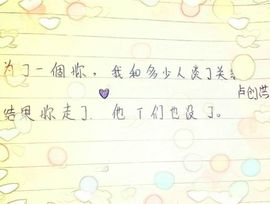 为了一個你，我和多少人淡了关系
卢创营
结果你走了.他丫们也没了。